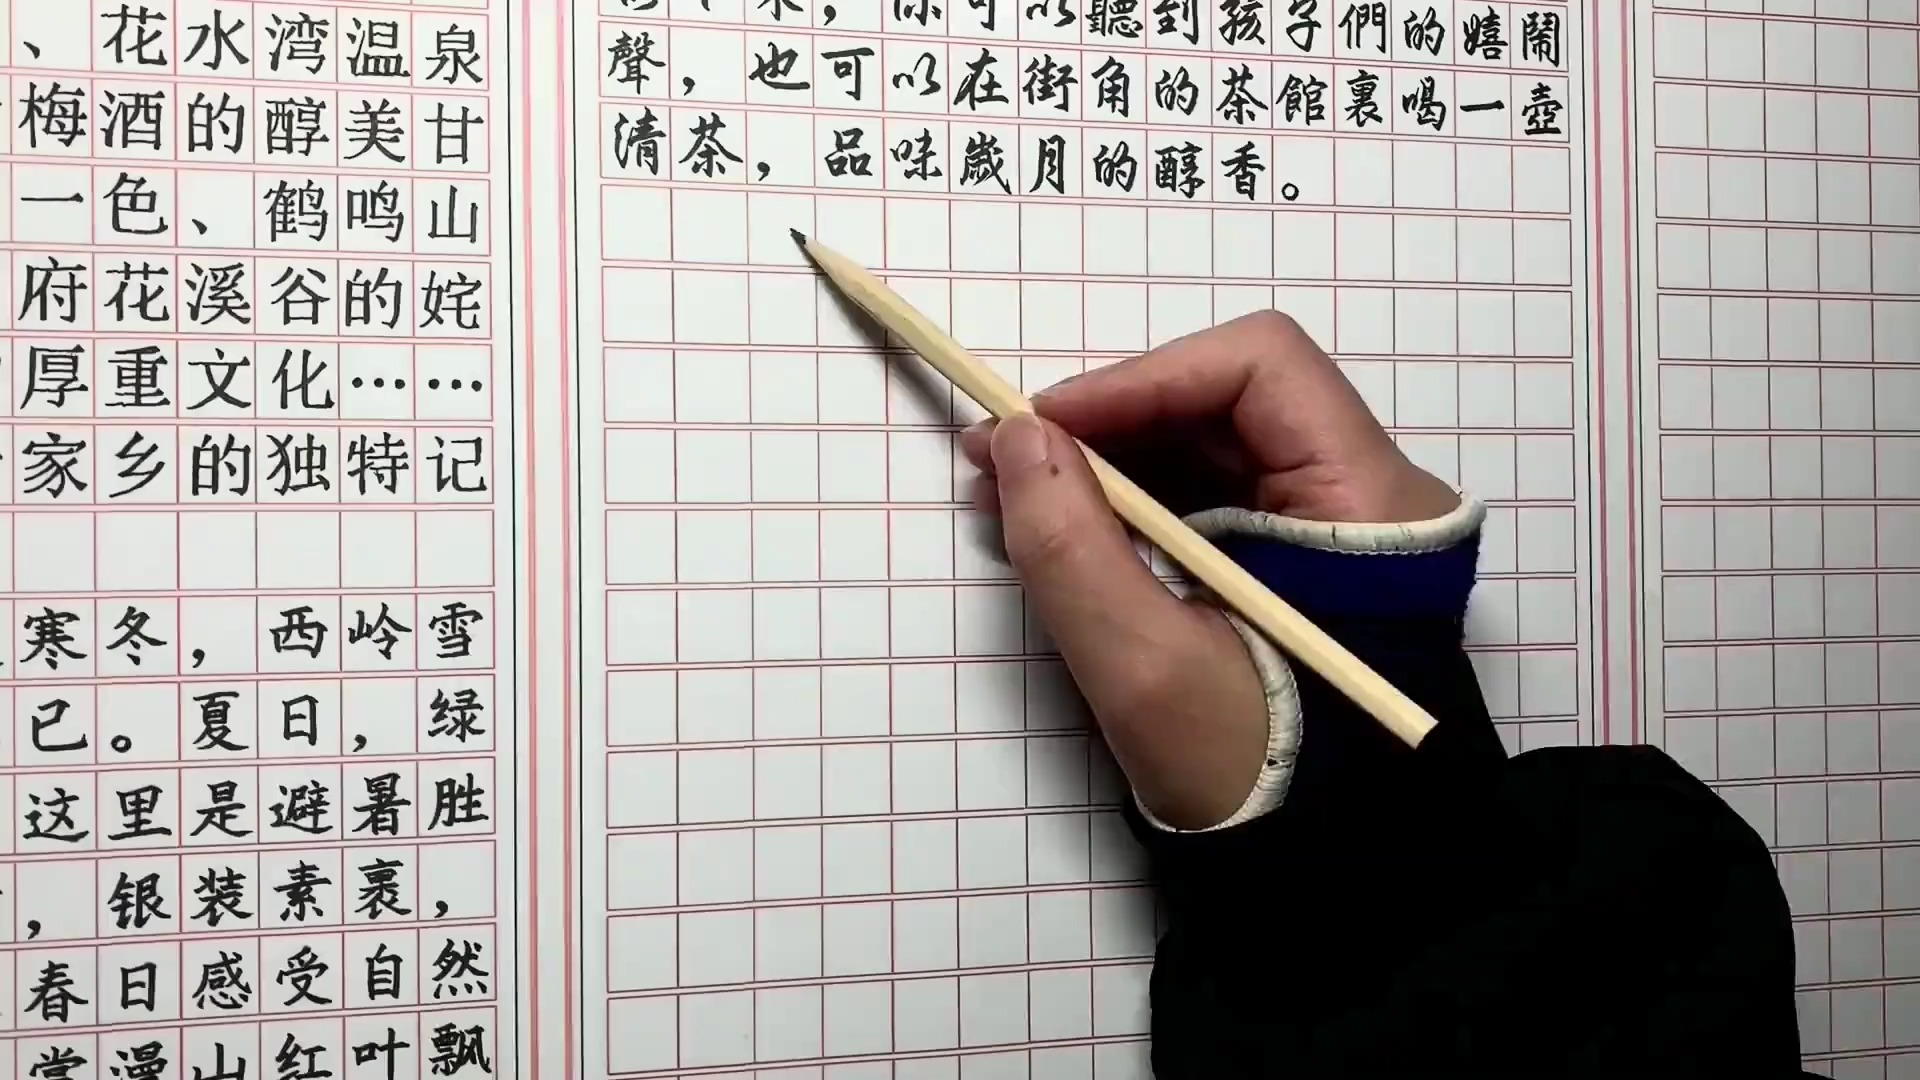 、花水湾温泉
梅酒的醇美甘
一色、鹤鸣山
府花溪谷的姹
厚重文化……
家乡的独特记
寒冬，西岭雪
已。夏日，绿
这里是避暑胜
，银装素裹，
春日感受自然
赏漫山红叶飘
，你可以聽到孩子們的嬉鬧
聲，也可以在街角的茶館裏喝一壺
清茶，品味歲月的醇香。